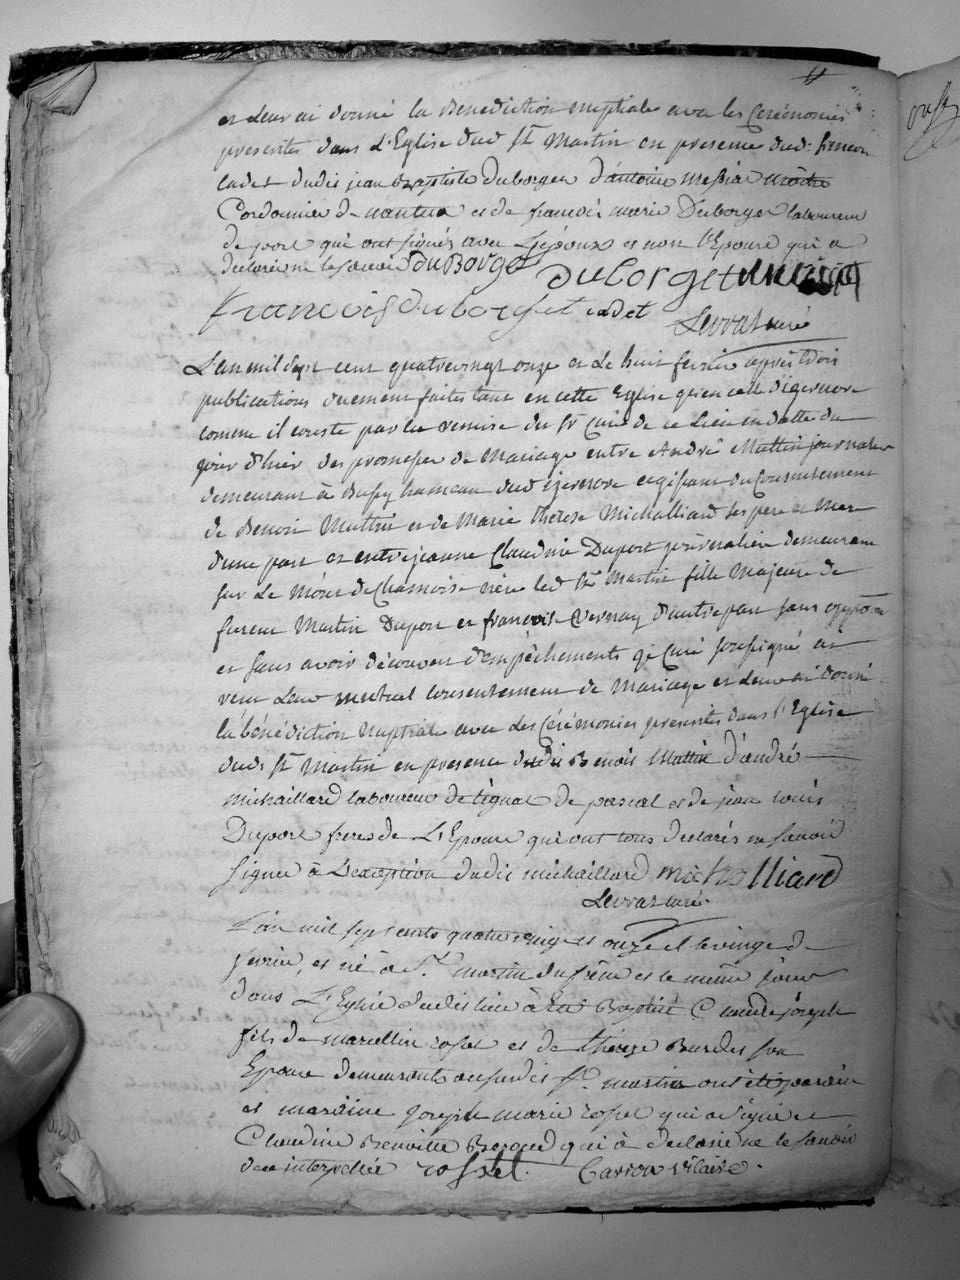 et leur ai donné la Bénédiction nuptiale avec les Cérémonies
prescrites dans l'Eglise dud. St Martin en presence dud. françois
cadet dudit jean Baptiste duborget d'antoine messia
Cordonnier de nantua et de francois marie Duborget laboureur
de port qui ont signés avec L'époux et non l'Epouse qui a
déclaré ne le savoir duBorget duborget
francois duborget cadet Levrat curé
L'an mil sept cent quatrevingt onze et le huit fevrier après trois
publications duement faites tant en cette Eglise qu'en celle d'izernore
comme il conste par la remise du Sr Curé de ce Lieu en datte du
jour d'hier des promesses de Mariage entre André Mattin journalier
demeurant à Bussy hameau dud izernore agissant du Consentement
de Benoit Mattin et de Marie thérese Michalliard ses pere et mere
d'une part et entre jeanne Claudine Duport journalière demeurant
sur Le Mont de Chamoise rière led St Martin fille Majeure de
furent Martin Duport et francoise Vernay d'autre part sans opposition
et sans avoir découvert d'empêchements je Curé soussigné ai
reçu Leur mutuel consentement de Mariage et Leur ai donné
la bénédiction nuptiale avec Les Cérémonies prescrites dans l'Eglise
dud. St Martin en presence dudit Benoit Mattin d'andré
michaillard laboureur de tignat de pascal et de jean Louis
Duport freres de L'Epouse qui ont tous declarés ne savoir
signer à L'exception dudit michaillard michalliard
Levrat curé
L'an mil sept cents quatrevingt et onze et le vingt de
fevrier, est né à St. martin du frêne et le même jour
dans L'Eglise dudit lieu à été Baptisé Claude joseph
fils de marcellin rosset et de thérèze Burdet son
Epouse demeurants audit St. martin ont été parrein
et marraine joseph marie rosset qui a signé et
Claudine Benoitte qui à declaré ne le savoir
de ce interpellée rosset. Carron vicaire.